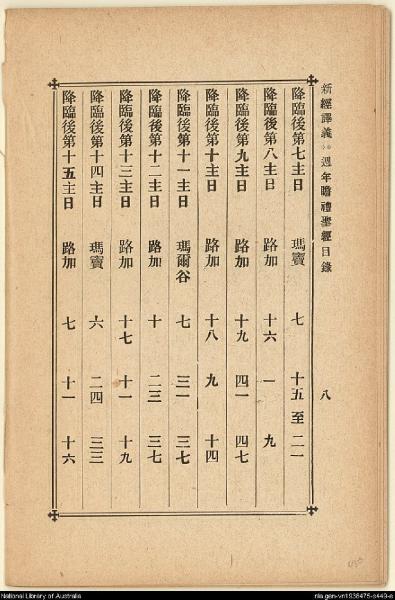 新經譯義 週年瞻禮聖經目錄 八
降臨後第七主日 瑪竇 七 十五 至 二一
降臨後第八主日 路加 十六 一 九
降臨後第九主日 路加 十九 四一 四七
降臨後第十主日 路加 十八 九 十四
降臨後第十一主日 瑪爾谷 七 三一 三七
降臨後第十二主日 路加 十 二三 三七
降臨後第十三主日 路加 十七 十一 十九
降臨後第十四主日 瑪竇 六 二四 三三
降臨後第十五主日 路加 七 十一 十六
National Library of Australia
nla.gen-vn1938475-s449-e